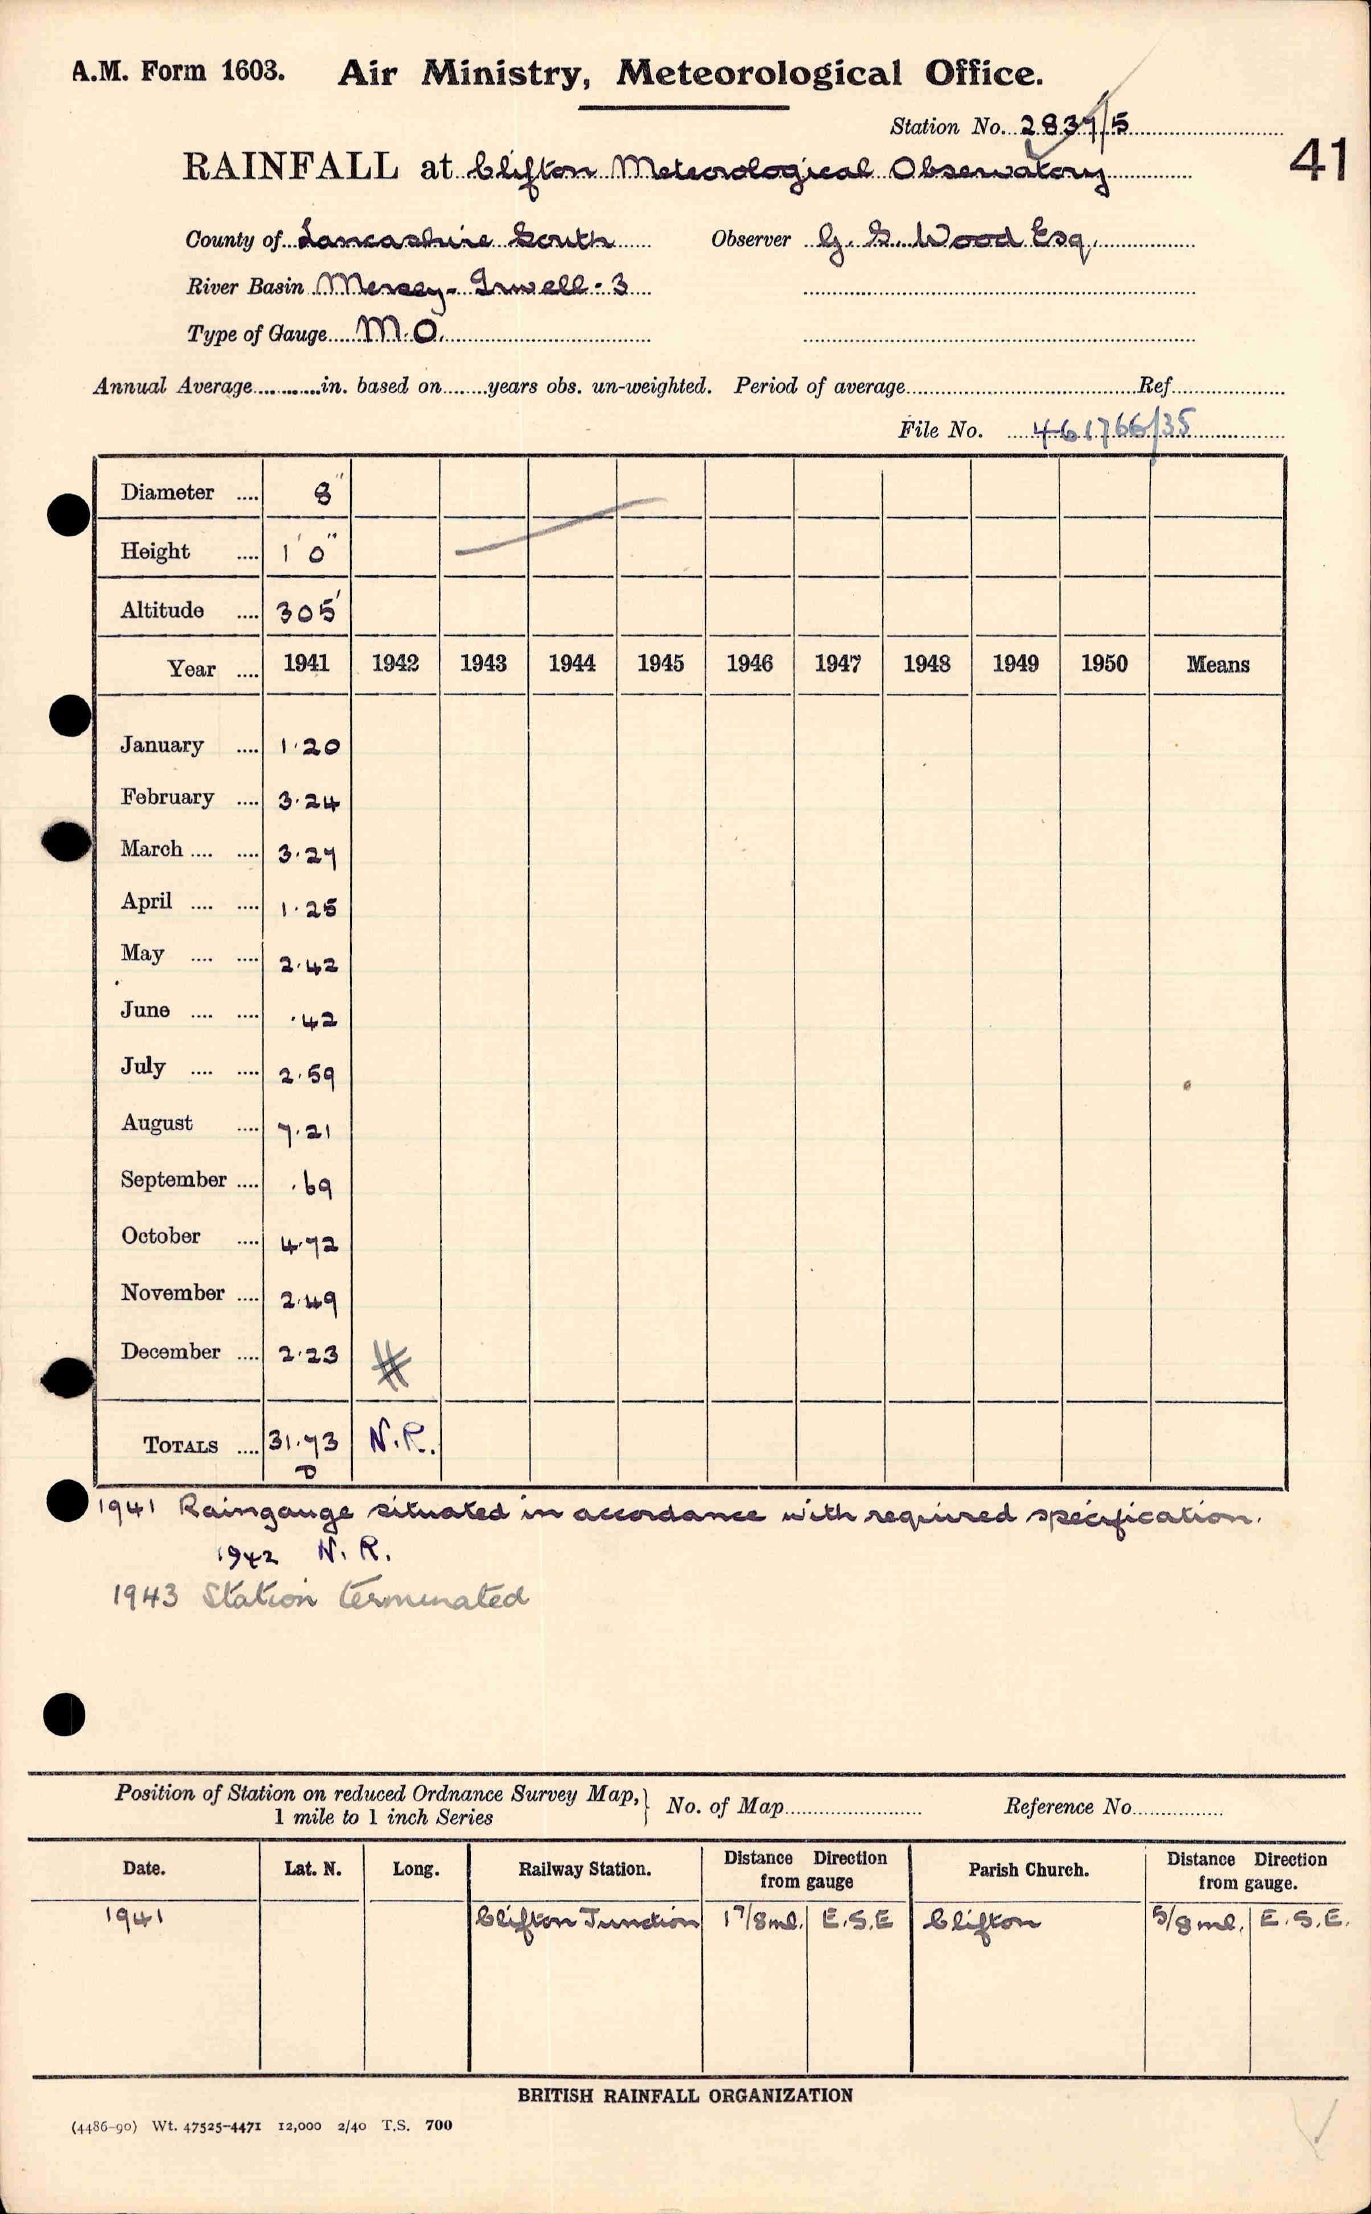 A.M. Form 1603. Air Ministry, Meteorological Office.
Station No. 2837/5
41
RAINFALL at Clifton Meteorological Observatory
County of Lancashire South Observer G. S. Wood Esq.
River Basin Mersey-Irwell-3
Type of Gauge M.O.
Annual Average in. based on years obs. un-weighted. Period of average Ref
File No. 461766/35
Diameter 8"
Height 1' 0"
Altitude 305'
Year 1941 1942 1943 1944 1945 1946 1947 1948 1949 1950 Means
January 1.20
February 3.24
March 3.27
April 1.25
May 2.42
June .42
July 2.59
August 7.21
September .69
October 4.72
November 2.49
December 2.23 #
TOTALS 31.73 N.R.
1941 Raingauge situated in accordance with required specification.
1942 N.R.
1943 Station terminated
Position of Station on reduced Ordnance Survey Map, No. of Map Reference No
1 mile to 1 inch Series
Date. Lat. N. Long. Railway Station. Distance Direction from gauge Parish Church. Distance Direction from gauge.
1941 Clifton Junction 1 7/8 ml. E.S.E Clifton 5/8 ml. E.S.E.
BRITISH RAINFALL ORGANIZATION
(4486-90) Wt. 47525-4471 12,000 2/40 T.S. 700